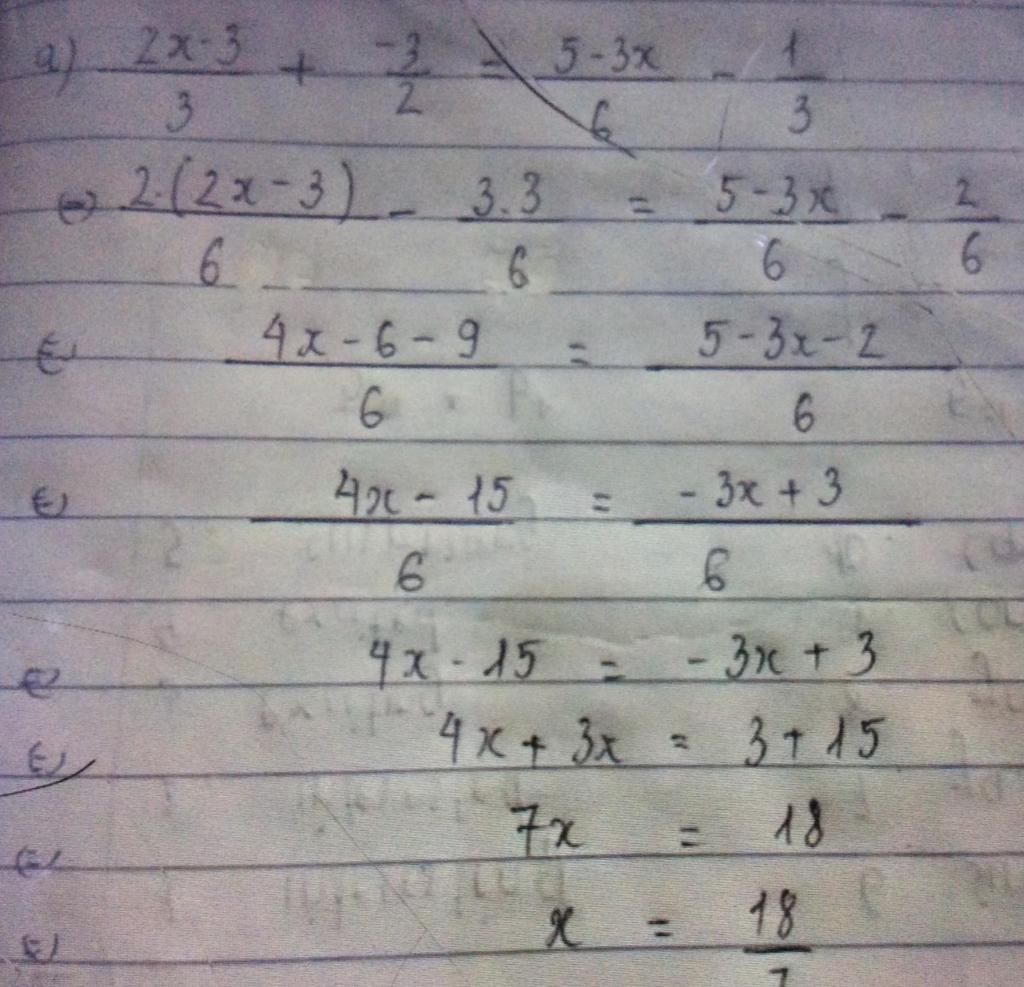 a) \frac{2x-3}{3} + \frac{-3}{2} = \frac{5-3x}{6} - \frac{1}{3}
⇔ \frac{2.(2x-3)}{6} - \frac{3.3}{6} = \frac{5-3x}{6} - \frac{2}{6}
⇔ \frac{4x-6-9}{6} = \frac{5-3x-2}{6}
⇔ \frac{4x-15}{6} = \frac{-3x+3}{6}
⇔ 4x-15 = -3x+3
⇔ 4x+3x = 3+15
⇔ 7x = 18
⇔ x = \frac{18}{7}